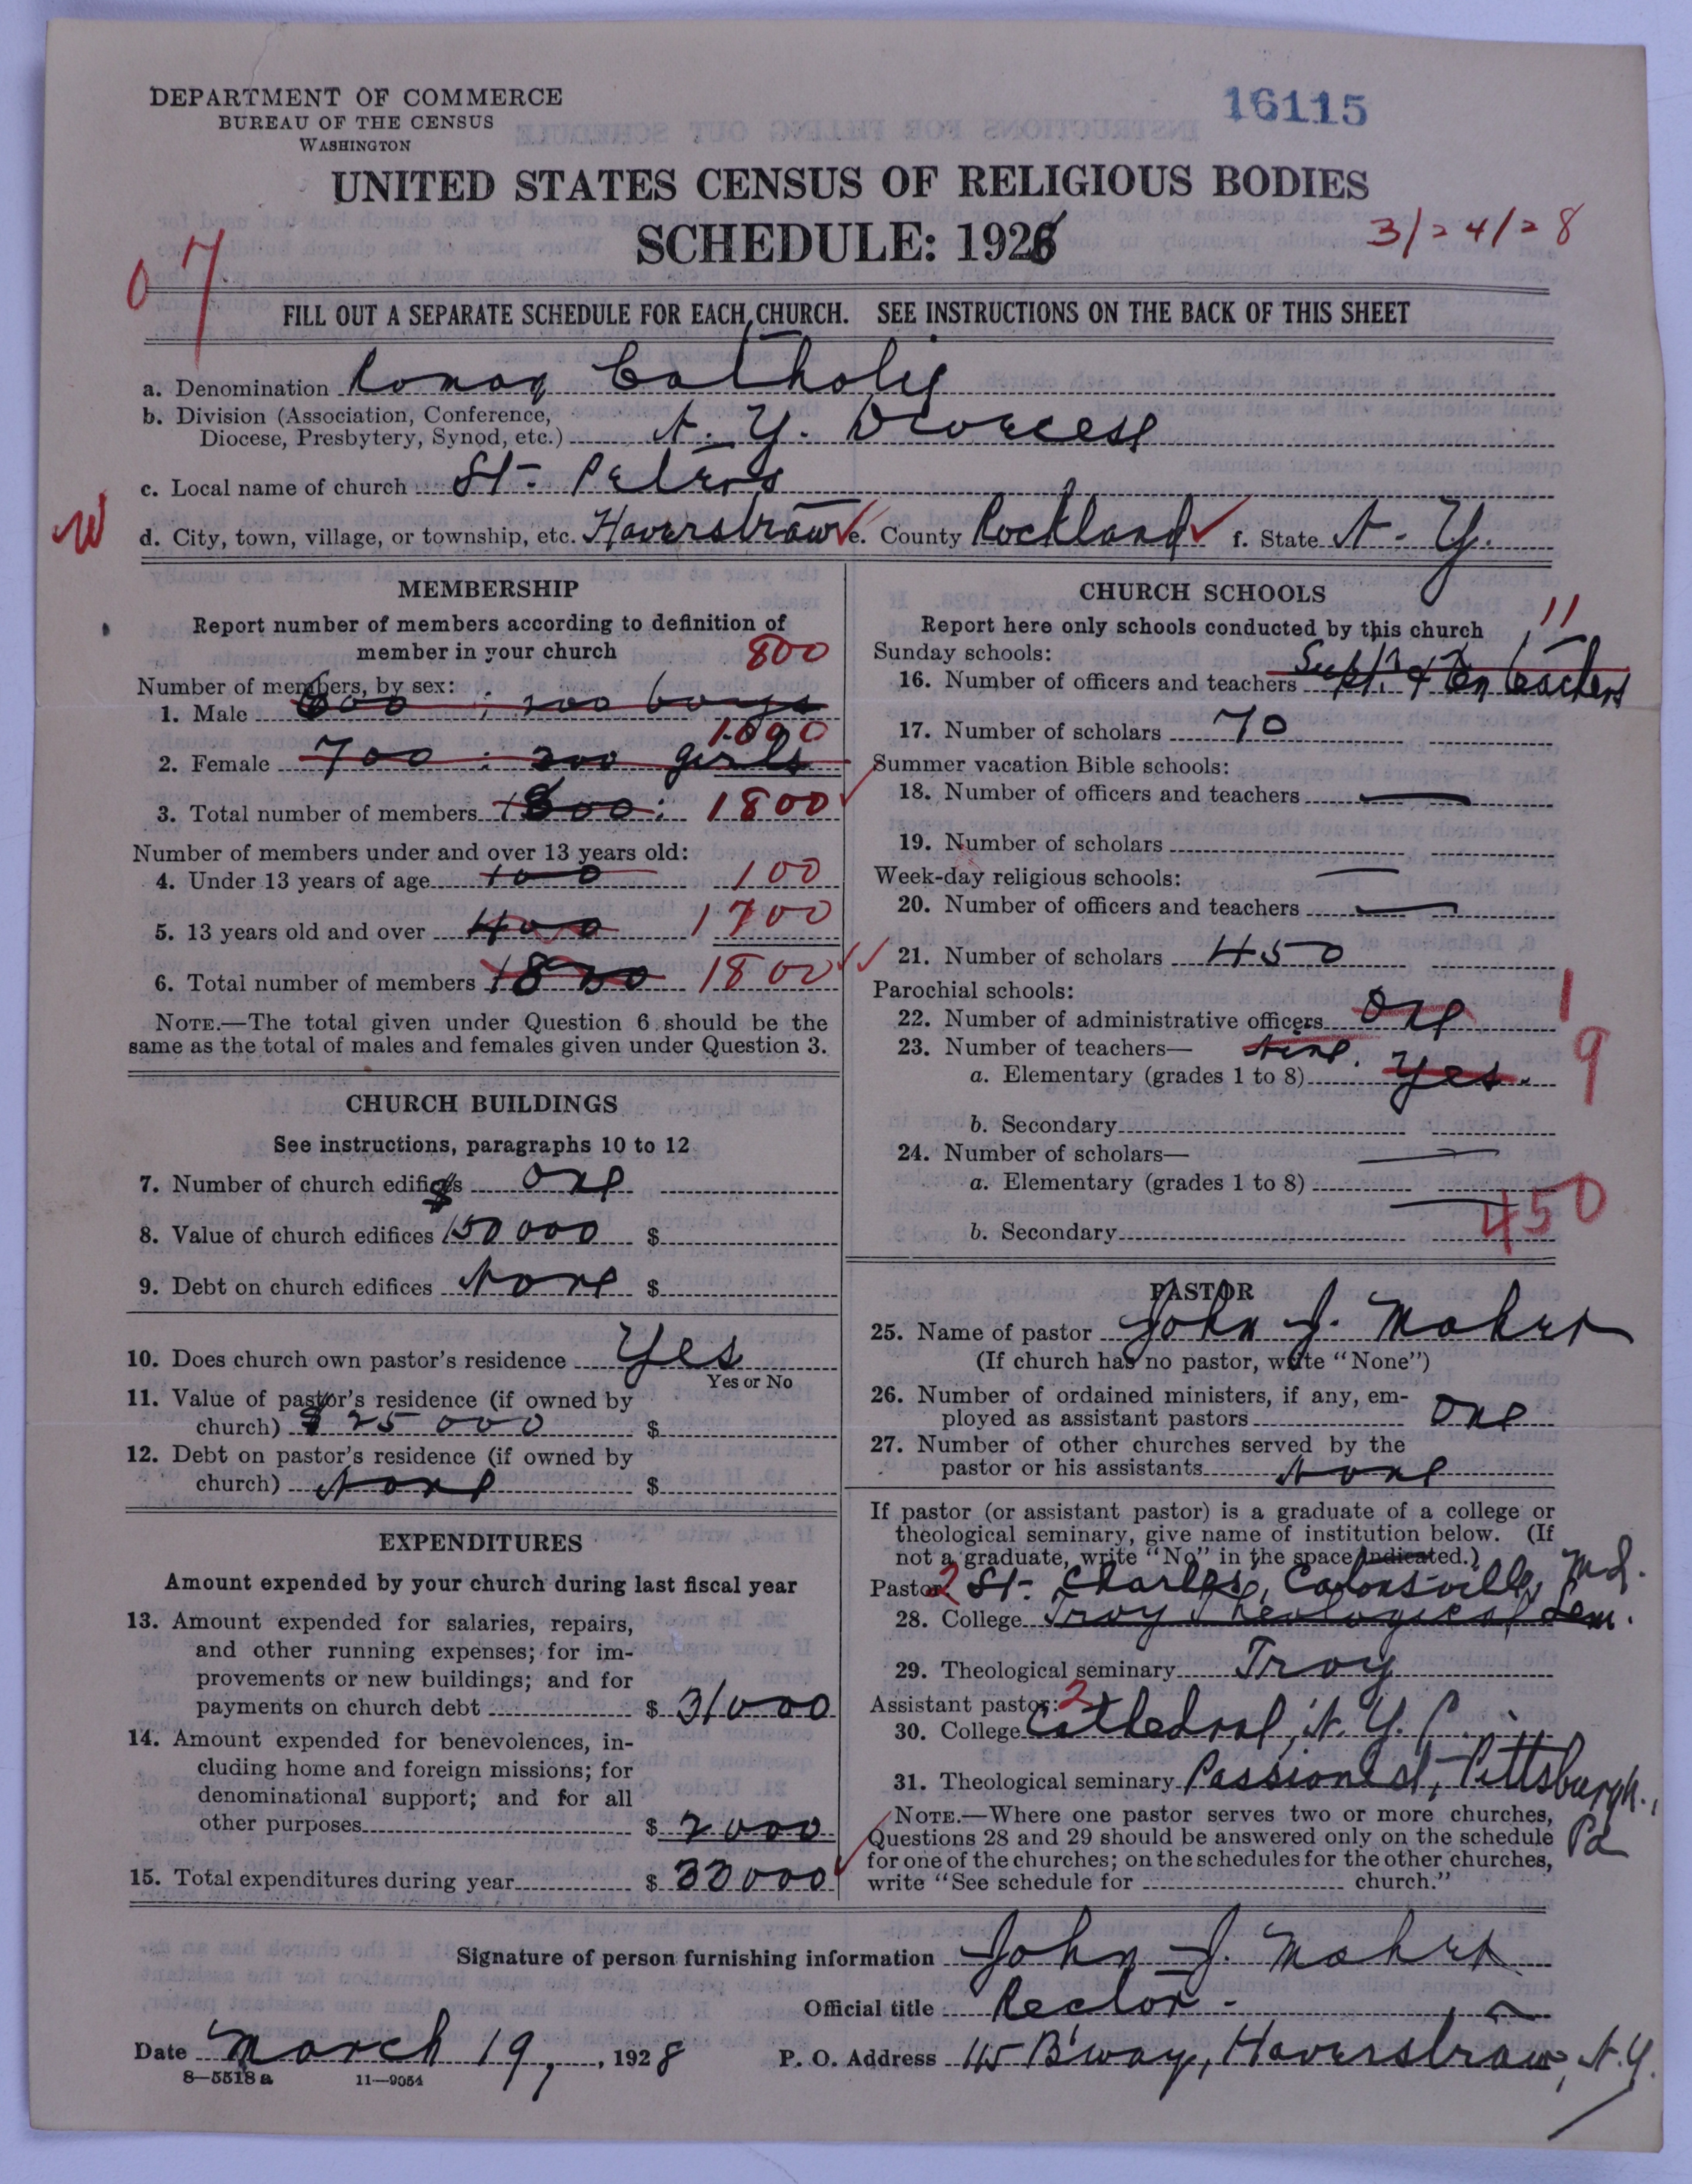 DEPARTMENT OF COMMERCE
BUREAU OF THE CENSUS
WASHINGTON
16115
UNITED STATES CENSUS OF RELIGIOUS BODIES
SCHEDULE: 1926
3/24/28
07
FILL OUT A SEPARATE SCHEDULE FOR EACH CHURCH. SEE INSTRUCTIONS ON THE BACK OF THIS SHEET
a. Denomination Roman Catholic
b. Division (Association, Conference,
Diocese, Presbytery, Synod, etc.) N. Y. Diocese
c. Local name of church St. Peter's
W
d. City, town, village, or township, etc. Haverstraw e. County Rockland f. State N. Y.
MEMBERSHIP
Report number of members according to definition of
member in your church
800
Number of members, by sex:
1. Male 600 : 200 boys
1000
2. Female 700 : 300 girls
3. Total number of members 1800: 1800
Number of members under and over 13 years old:
4. Under 13 years of age 100 100
5. 13 years old and over 400 1700
6. Total number of members 1800 1800
NOTE.—The total given under Question 6 should be the
same as the total of males and females given under Question 3.
CHURCH BUILDINGS
See instructions, paragraphs 10 to 12
7. Number of church edifices one
8. Value of church edifices $150000 $
9. Debt on church edifices None $
10. Does church own pastor's residence Yes
Yes or No
11. Value of pastor's residence (if owned by
church) $25000 $
12. Debt on pastor's residence (if owned by
church) None $
EXPENDITURES
Amount expended by your church during last fiscal year
13. Amount expended for salaries, repairs,
and other running expenses; for im-
provements or new buildings; and for
payments on church debt $ 31000
14. Amount expended for benevolences, in-
cluding home and foreign missions; for
denominational support; and for all
other purposes $ 2000
15. Total expenditures during year $ 33000
CHURCH SCHOOLS
Report here only schools conducted by this church
11
Sunday schools:
16. Number of officers and teachers Supt. & ten teachers
17. Number of scholars 70
Summer vacation Bible schools:
18. Number of officers and teachers —
19. Number of scholars
Week-day religious schools: —
20. Number of officers and teachers —
21. Number of scholars 450
Parochial schools:
22. Number of administrative officers One 1
23. Number of teachers— Nine. 9
a. Elementary (grades 1 to 8) Yes.
b. Secondary
24. Number of scholars— —
a. Elementary (grades 1 to 8) — 450
b. Secondary
PASTOR
25. Name of pastor John J. Maher
(If church has no pastor, write "None")
26. Number of ordained ministers, if any, em-
ployed as assistant pastors One
27. Number of other churches served by the
pastor or his assistants None
If pastor (or assistant pastor) is a graduate of a college or
theological seminary, give name of institution below. (If
not a graduate, write "No" in the space indicated.)
Pastor: 2 St. Charles, Catonsville, Md.
28. College Troy Theological Sem.
29. Theological seminary Troy
Assistant pastor: 2
30. College Cathedral, N. Y. C.
31. Theological seminary Passionist, Pittsburgh., Pa
NOTE.—Where one pastor serves two or more churches,
Questions 28 and 29 should be answered only on the schedule
for one of the churches; on the schedules for the other churches,
write "See schedule for church."
Signature of person furnishing information John J. Maher
Official title Rector -
Date March 19, , 1928 P. O. Address 115 B'way, Haverstraw, N.Y.
8—5518a 11—9054